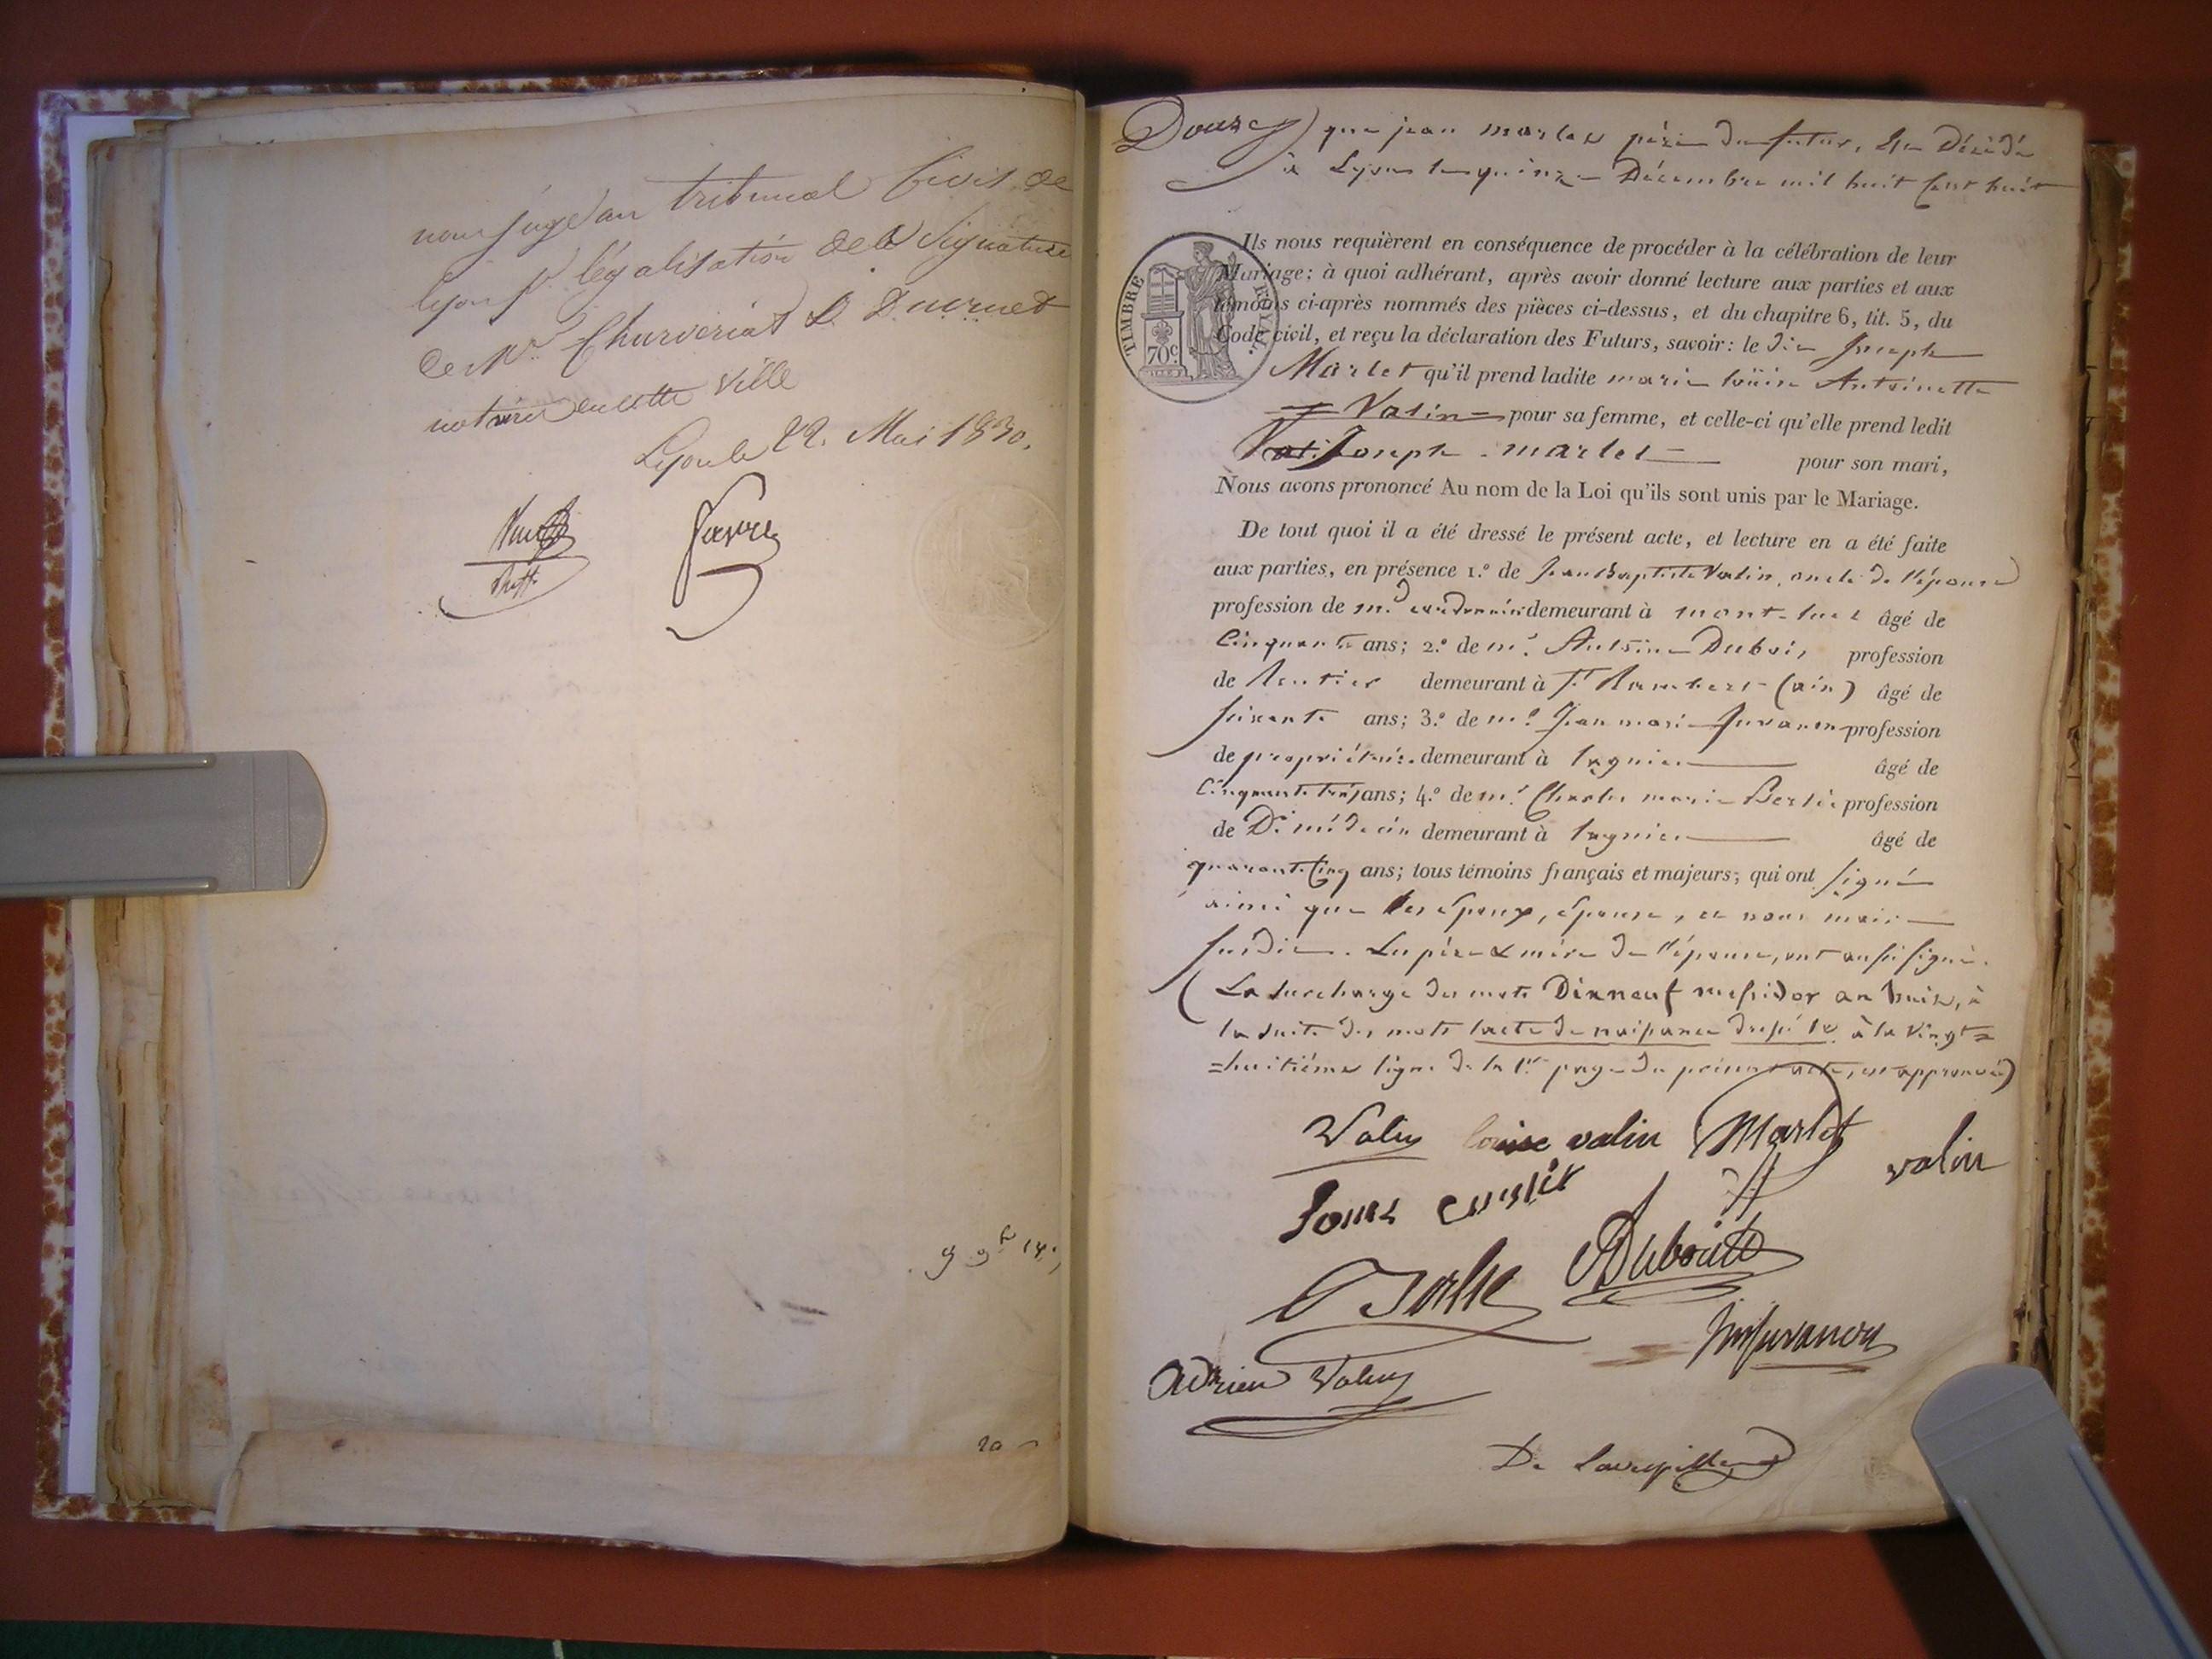 nous juge au tribunal Civil de
lyon pr légalisation de la Signature
de Mr Charveriat & Ducruet
notaires en cette ville
Lyon le 22. Mai 1830.
Favre
9 9bre 14
20
Douze que jean marlet père du futur, est Décédé
à Lyon le quinze Décembre mil huit Cent huit
Ils nous requièrent en conséquence de procéder à la célébration de leur
Mariage; à quoi adhérant, après avoir donné lecture aux parties et aux
témoins ci-après nommés des pièces ci-dessus, et du chapitre 6, tit. 5, du
Code civil, et reçu la déclaration des Futurs, savoir: le dit Joseph
Marlet qu'il prend ladite marie loüise Antoinette
= Valin = pour sa femme, et celle-ci qu'elle prend ledit
Joseph marlet pour son mari,
Nous avons prononcé Au nom de la Loi qu'ils sont unis par le Mariage.
De tout quoi il a été dressé le présent acte, et lecture en a été faite
aux parties, en présence 1.º de Jean Baptiste Valin, oncle de l'épouse
profession de md demeurant à mont-luel âgé de
Cinquante ans; 2.º de mr. Antoine Dubois profession
de Rentier demeurant à St Rambert (ain) âgé de
soixante ans; 3.º de mr. Jean marie Juvanon profession
de propriétaire demeurant à lagnieu âgé de
Cinquante trois ans; 4.º de mr. Charles marie profession
de Dr médecin demeurant à lagnieu âgé de
quarante Cinq ans; tous témoins français et majeurs; qui ont signé
ainsi que les époux, épouse, et nous maire
susdit. Les père & mère de l'épouse, ont aussi signé.
(La surcharge des mots Dixneuf messidor an huit, à
la suite des mots l'acte de naissance dressé le à la vingt=
=huitième ligne de la 1re page du présent acte, est approuvée)
Valin louise valin Marlet valin
Dubois
Jm juvanon
Adrien Valin
TIMBRE ROYAL
70c